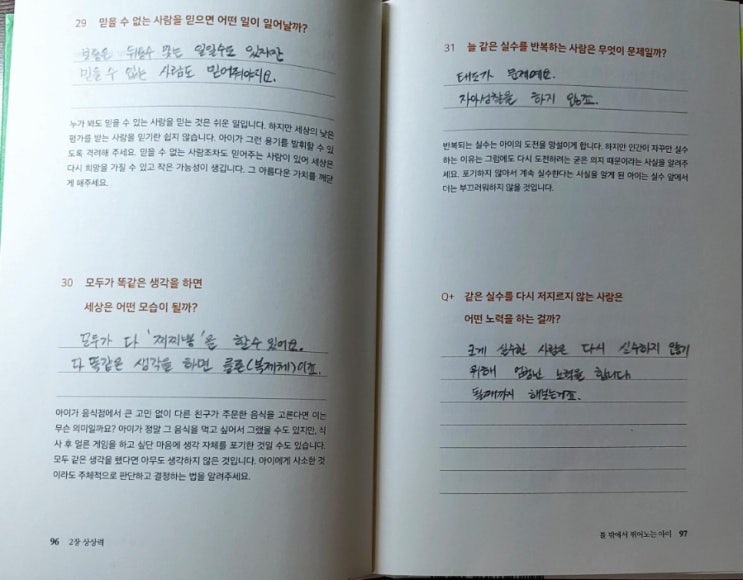 29 믿을 수 없는 사람을 믿으면 어떤 일이 일어날까?
뒤통수 맞는 일일수도 있지만
믿을 수 없는 사람도 믿어줘야지요.
누가 봐도 믿을 수 있는 사람을 믿는 것은 쉬운 일입니다. 하지만 세상의 낮은
평가를 받는 사람을 믿기란 쉽지 않습니다. 아이가 그런 용기를 발휘할 수 있
도록 격려해 주세요. 믿을 수 없는 사람조차도 믿어주는 사람이 있어 세상은
다시 희망을 가질 수 있고 작은 가능성이 생깁니다. 그 아름다운 가치를 깨닫
게 해주세요.
30 모두가 똑같은 생각을 하면
세상은 어떤 모습이 될까?
모두가 다 '찌찌뽕'을 할수 있어요.
다 똑같은 생각을 하면 클론(복제체)이죠.
아이가 음식점에서 큰 고민 없이 다른 친구가 주문한 음식을 고른다면 이는
무슨 의미일까요? 아이가 정말 그 음식을 먹고 싶어서 그랬을 수도 있지만, 식
사 후 얼른 게임을 하고 싶단 마음에 생각 자체를 포기한 것일 수도 있습니다.
모두 같은 생각을 했다면 아무도 생각하지 않은 것입니다. 아이에게 사소한 것
이라도 주체적으로 판단하고 결정하는 법을 알려주세요.
96 2장 상상력
31 늘 같은 실수를 반복하는 사람은 무엇이 문제일까?
태도가 문제예요.
자아성찰을 하지 않죠.
반복되는 실수는 아이의 도전을 망설이게 합니다. 하지만 인간이 자꾸만 실수
하는 이유는 그럼에도 다시 도전하려는 굳은 의지 때문이라는 사실을 알려주
세요. 포기하지 않아서 계속 실수한다는 사실을 알게 된 아이는 실수 앞에서
더는 부끄러워하지 않을 것입니다.
Q+ 같은 실수를 다시 저지르지 않는 사람은
어떤 노력을 하는 걸까?
크게 실수한 사람은 다시 실수하지 않기
위해 엄청난 노력을 합니다.
될때까지 해보는거죠.
틀 밖에서 뛰어노는 아이 97